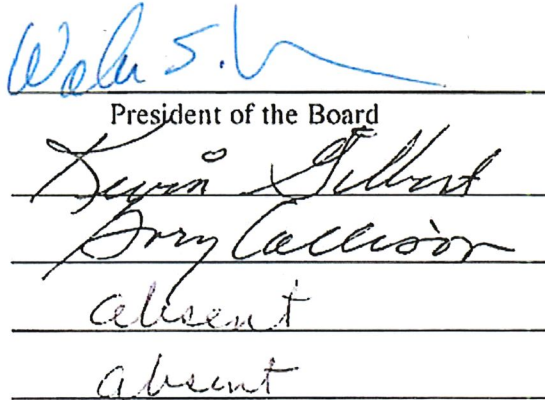 S.
President of the Board
Kevin Gilbert
Gary Collison
absent
absent